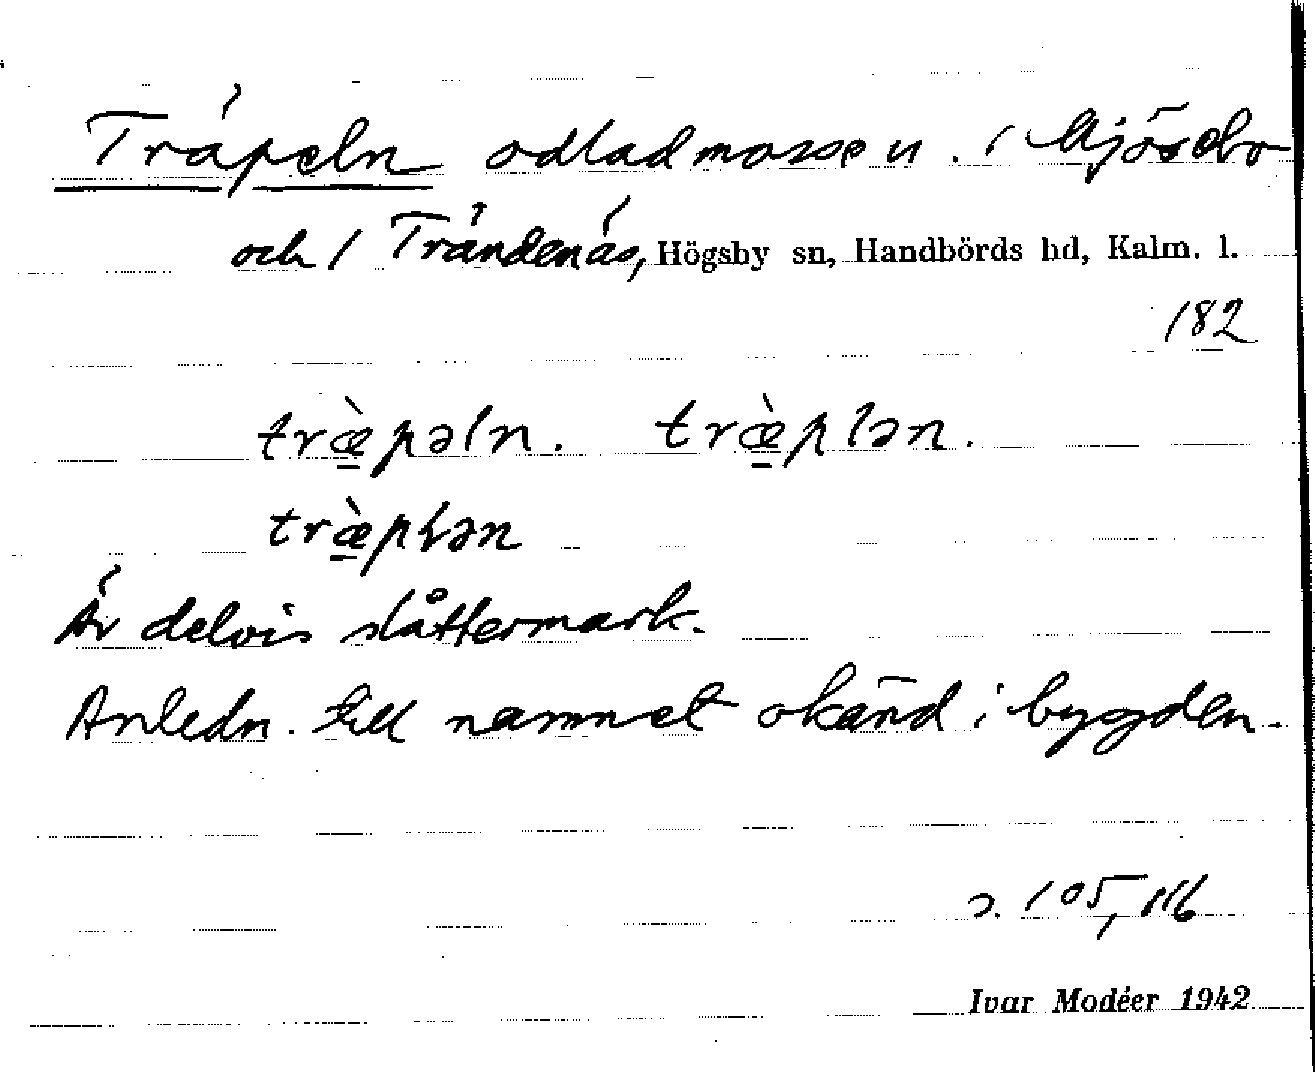 Träpeln odlad mosse u. 1 Mjösebo
och 1 Trändenäs, Högsby sn, Handbörds hd, Kalm. l.
182
træ̀pəln. træ̀plən.
træ̀pɫən
Är delvis slåttermark.
Anledn. till namnet okänd i bygden.
s. 105, 116
Ivar Modéer 1942